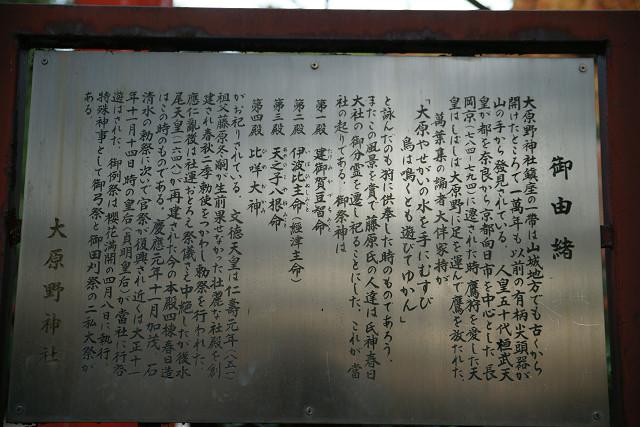 御由緒
大原野神社鎮座の一帯は山城地方でも古くから
開けたところで一万年も以前の有柄尖頭器が
山の手から発見されている。人皇五十代桓武天
皇が都を奈良から京都向日市を中心とした長
岡京(七八四-七九四)に遷された時鷹狩を愛した天
皇はしばしば大原野に足を運んで鷹を放たれた、
萬葉集の論者大伴家持が
「大原やせがいの水を手にむすび
鳥は鳴くとも遊びてゆかん」
と詠んだのも羽に供奉した時のものであろう。
またこの風景を賞で藤原氏の人達は氏神春日
大社の御分霊を遷し祀ることにした、これが當
社の起りである。御祭神は
第一殿 建御賀豆智命
第二殿 伊波比主命(経津主命)
第三殿 天之子八根命
第四殿 比咩大神
がお祀りされている 文徳天皇は仁壽元年(八五一)
祖父藤原冬嗣が生前果せなかった壮麗な社殿を創
建され春秋二季勅使をつかわし勅祭を行われた、
應仁亂後は社運おとろえ祭儀さえ中絶したが後水
尾天皇(一六四八)が再建された今の本殿四棟春日造
はこの時のものである。慶應元年十一月加茂、石
清水の勅祭に次いで官祭が復興され近くは大正十一
年十一月十四日時の皇后(貞明皇后)が當社に行啓
遊ばされた、御例祭は櫻花満開の四月八日に執行
特殊神事として御弓祭と御田刈祭の二私大祭が
ある。
大原野神社